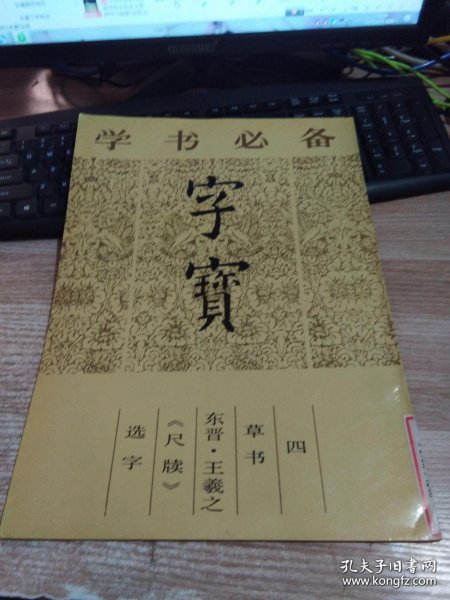 QUSHIMEI
学书必备
字寶
四
草书
东晋·王羲之
《尺牍》
选字
孔夫子旧书网
www.kongfz.com